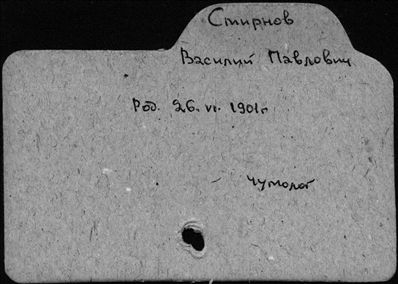 Смирнов
Василий Павлович
Род. 26. VI. 1901г
Чумолог